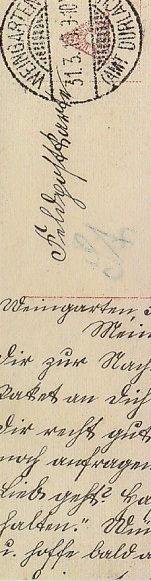 WEINGARTEN
31.3.
3-10
(AMT DURLACH)
Feldpostkarte
Weingarten,
Mein
Dir zur Nach
Paket an Dich
Dir recht gut
noch anfragen
Liebe geht?
halten.
u. hoffe bald a